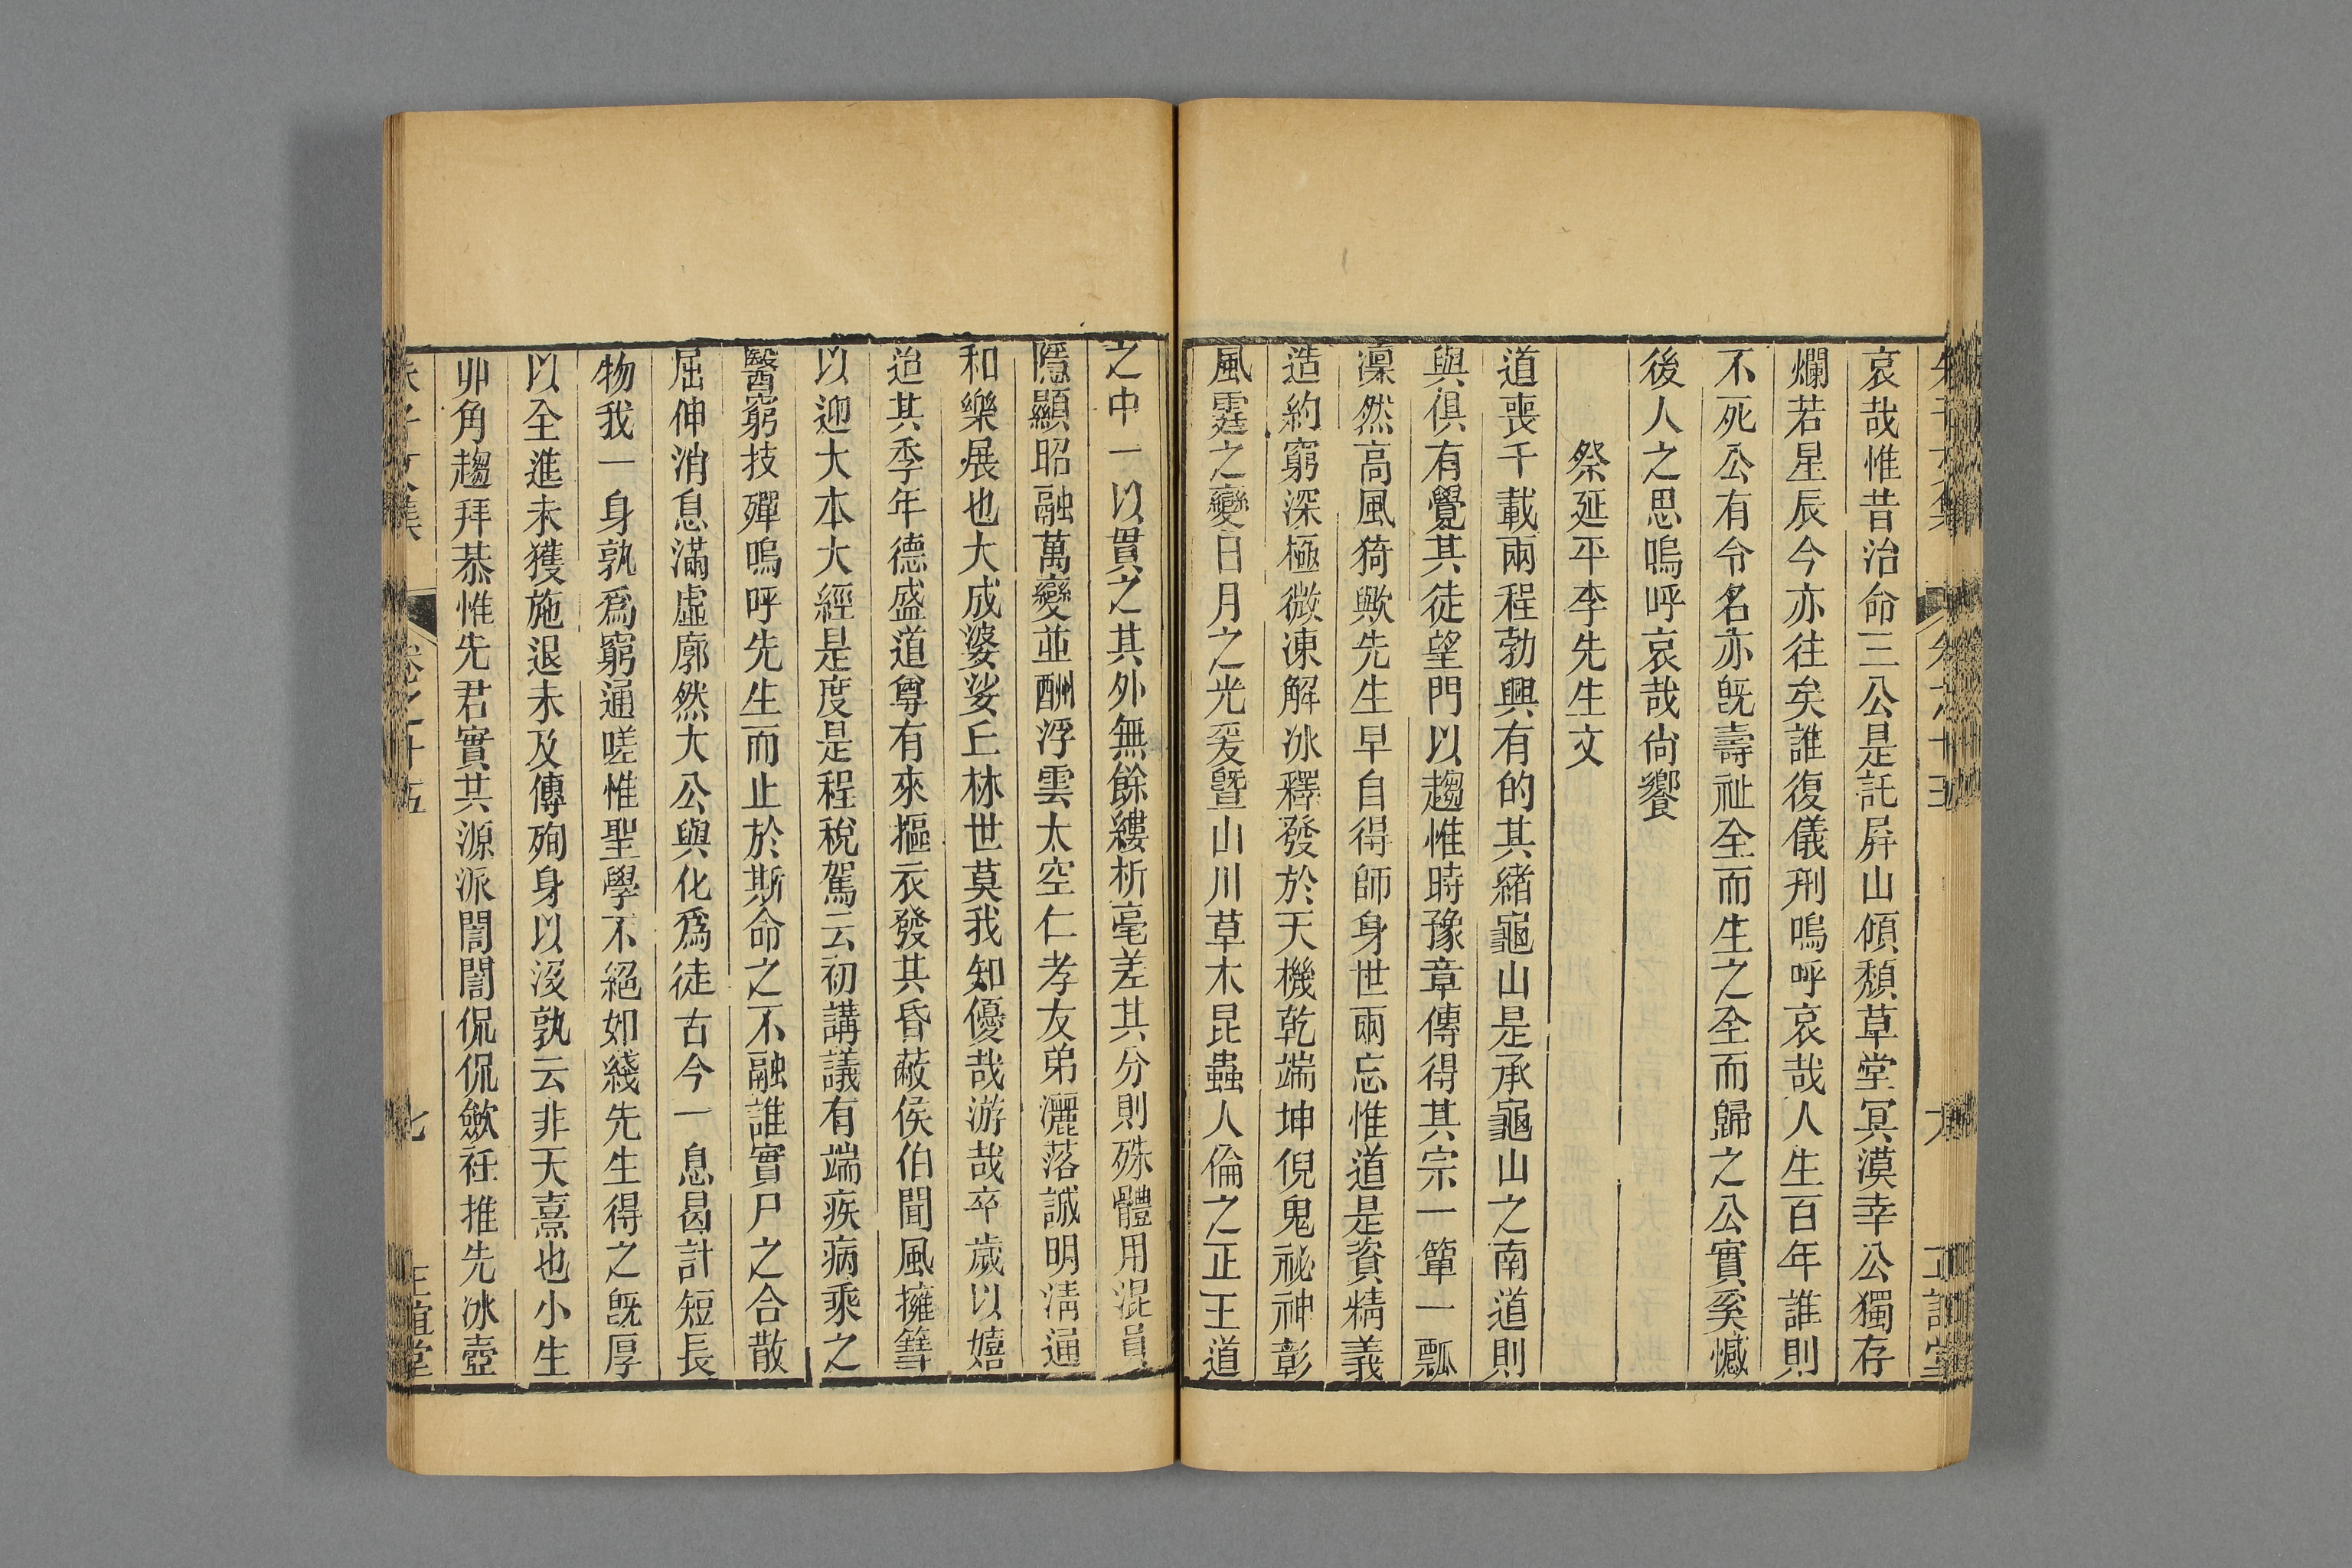 哀哉惟昔治命三公是託屏山傾頹草堂冥漠幸公獨存
爛若星辰今亦往矣誰復儀刑嗚呼哀哉人生百年誰則
不死公有令名亦旣壽祉全而生之全而歸之公實奚憾
後人之思嗚呼哀哉尙饗
祭延平李先生文
道喪千載兩程勃興有的其緒龜山是承龜山之南道則
與俱有覺其徒望門以趨惟時豫章傳得其宗一簞一瓢
凜然高風猗歟先生早自得師身世兩忘惟道是資精義
造約窮深極微凍解冰釋發於天機乾端坤倪鬼祕神彰
風霆之變日月之光爰曁山川草木昆蟲人倫之正王道
之中一以貫之其外無餘縷析毫差其分則殊體用混員
隱顯昭融萬變並酬浮雲太空仁孝友弟灑落誠明淸通
和樂展也大成婆娑丘林世莫我知優哉游哉卒歲以嬉
迨其季年德盛道尊有來摳衣發其昏蔽侯伯聞風擁篲
以迎大本大經是度是程稅駕云初講議有端疾病乘之
醫窮技殫嗚呼先生而止於斯命之不融誰實尸之合散
屈伸消息滿虛廓然大公與化爲徒古今一息曷計短長
物我一身孰爲窮通嗟惟聖學不絕如綫先生得之旣厚
以全進未獲施退未及傳殉身以沒孰云非天熹也小生
丱角趨拜恭惟先君實共源派誾誾侃侃歛衽推先冰壺
朱子文集
卷之十五
七
正誼堂